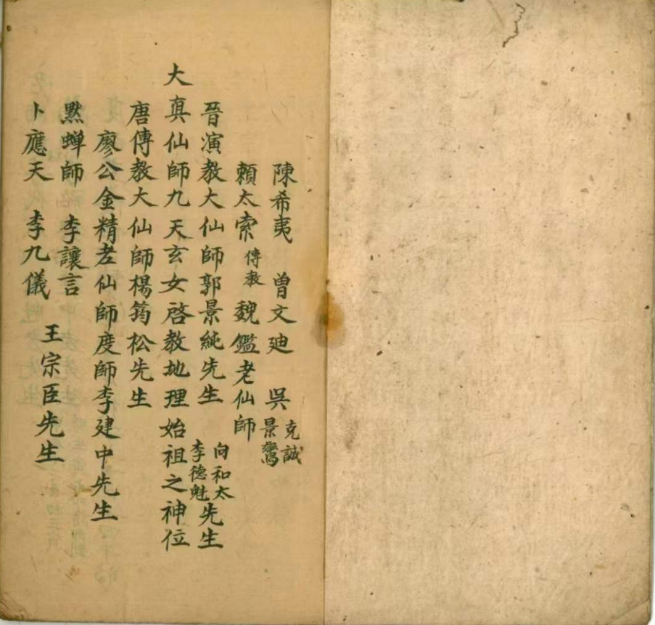 陳希夷 曾文迪 吳克誠 景鸞
賴太索傳教 魏鑑老仙師
晉演教大仙師郭景純先生 向和太 李德魁 先生
大真仙師九天玄女啓教地理始祖之神位
唐傳教大仙師楊筠松先生
廖公金精老仙師度師李建中先生
默蟬師 李讓言
卜應天 李九儀 王宗臣先生